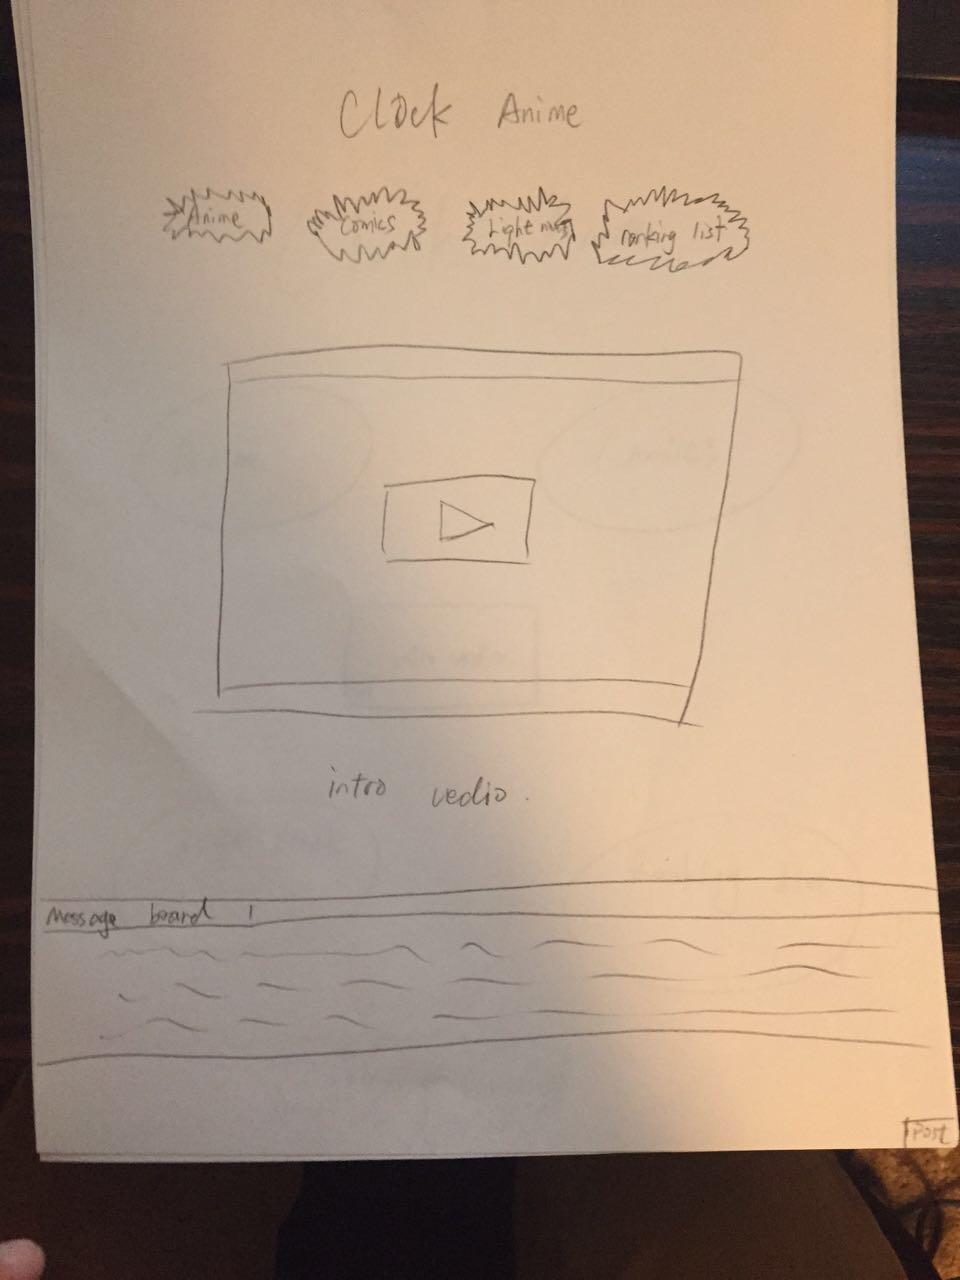 Clock Anime
Anime
Comics
Light
ranking list
intro vedio.
Message board
Post